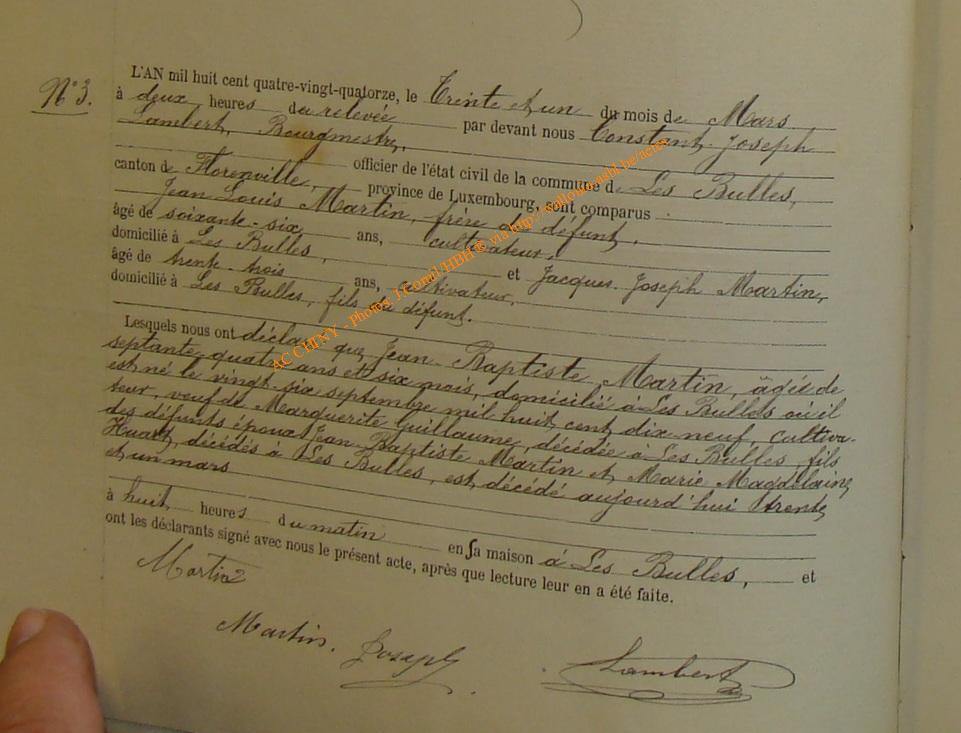 N° 3.
L'AN mil huit cent quatre-vingt-quatorze, le Trente et un du mois de Mars
à deux heures du relevée par devant nous Constant Joseph
Lambert, Bourgmestre,
officier de l'état civil de la commune de Les Bulles,
canton de Florenville, province de Luxembourg, sont comparus
Jean Louis Martin, frère du défunt,
âgé de soixante-six ans, cultivateur,
domicilié à Les Bulles, et Jacques Joseph Martin,
âgé de trente-trois ans, cultivateur,
domicilié à Les Bulles, fils du défunt.
Lesquels nous ont déclaré que Jean-Baptiste Martin, âgé de
septante-quatre ans et six mois, domicilié à Les Bulles où il
est né le vingt-six septembre mil huit cent dix-neuf, cultiva-
teur, veuf de Marguerite Guillaume, décédée à Les Bulles, fils
des défunts époux Jean-Baptiste Martin et Marie Magdelaine
Huart, décédés à Les Bulles, est décédé aujourd'hui trente
et un mars
à huit heures du matin en sa maison à Les Bulles, et
ont les déclarants signé avec nous le présent acte, après que lecture leur en a été faite.
Martin
Martin. Joseph.
Lambert
AC CHINY - Photos J.Fomil/HBH © via http://